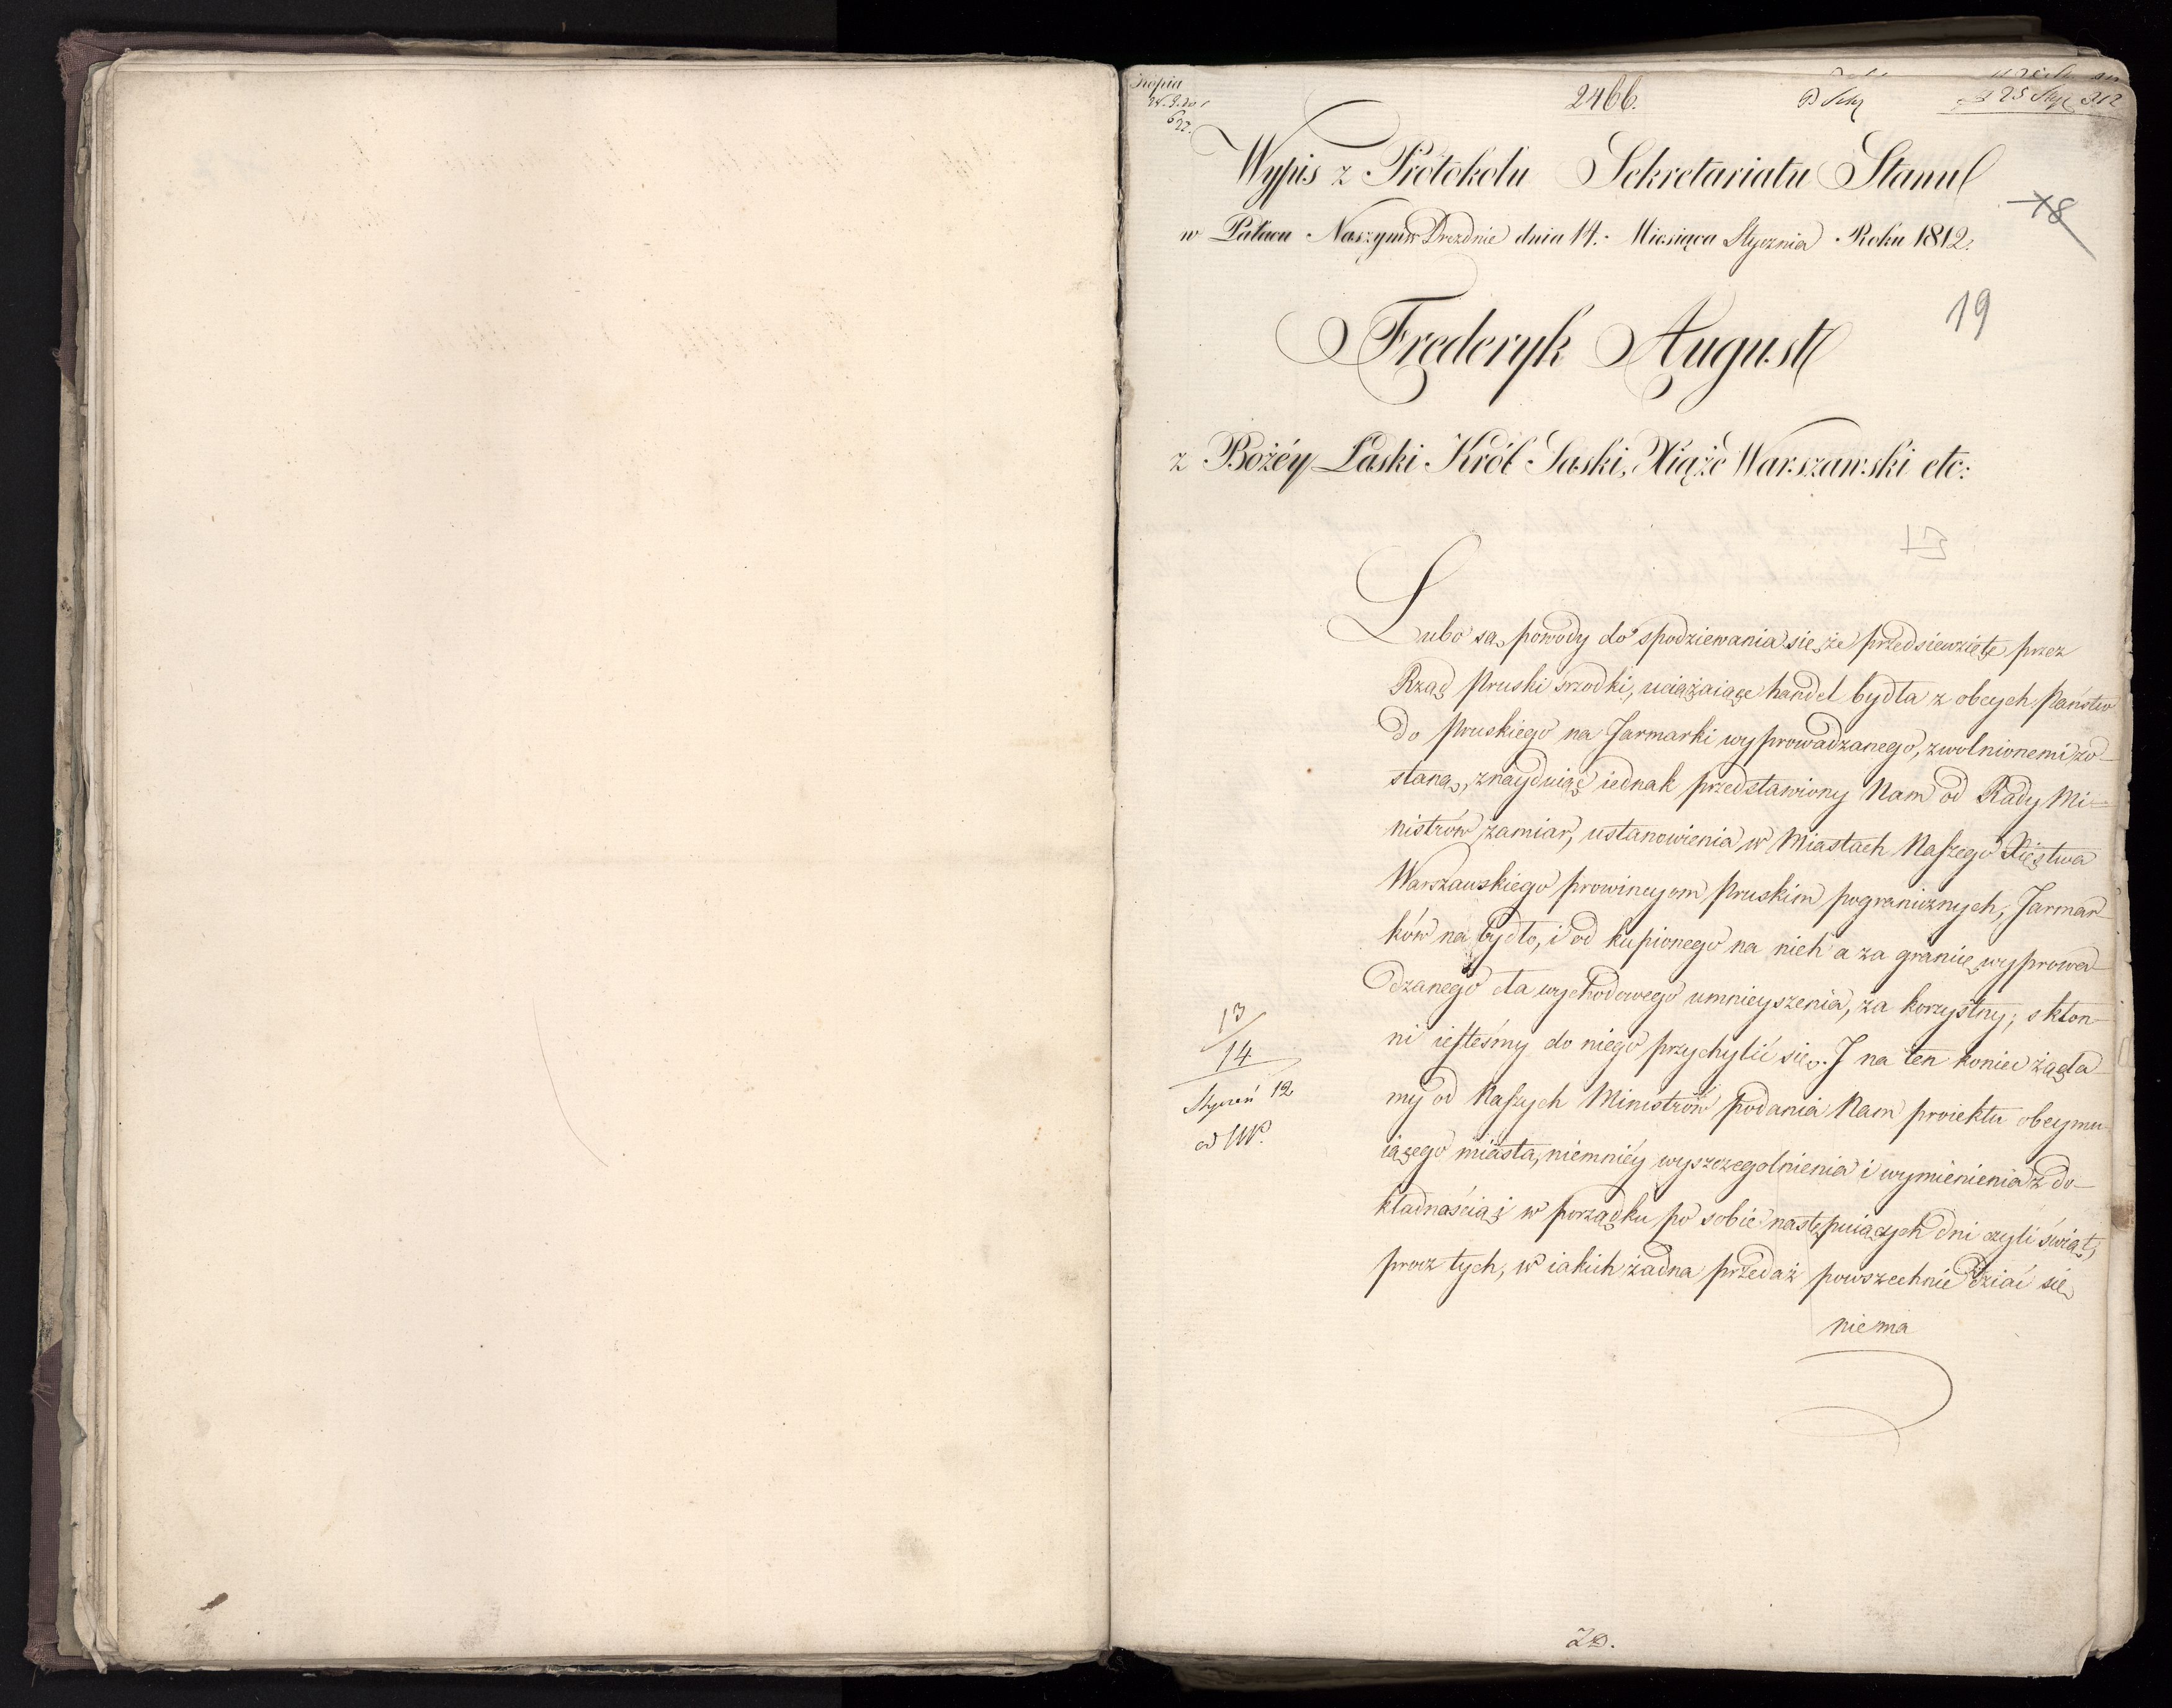 Kopia
2466.
25 Stycz 812
Wypis z Protokołu Sekretariatu Stanu
w Pałacu Naszym w Dreznie dnia 14. Miesiąca Stycznia Roku 1812.
18
19
Frederyk August
z Bożéy Łaski Król Saski, Xiąże Warszawski etc:
Lubo są powody do spodziewania się, że przedsiewzięte przez
Rząd Pruski srzodki, uciążaiące handel bydła z obcych Państw
do Pruskiego na Jarmarki wyprowadzanego, zwolnionemi zo-
staną, znayduiąc iednak przedstawiony Nam od Rady Mi-
nistrów zamiar, ustanowienia w Miastach Naszego Xięstwa
Warszawskiego prowincyom Pruskim pogranicznych, Jarmar-
ków na bydło, i od kupionego na nich a za granicę wyprowa-
dzanego cła wychodowego umnieyszenia, za korzystny; skłon-
ni iesteśmy do niego przychylić się. J na ten koniec żąda-
my od Naszych Ministrów podania Nam proiektu obeymu-
iącego miasta, niemniéy wyszczegolnienia i wymienienia z do-
kładnością i w porządku po sobie następuiących dni czyli świąt,
procz tych, w iakich żadna przedaż powszechnie dziać się
niema
13
14
Styczeń 12
20.